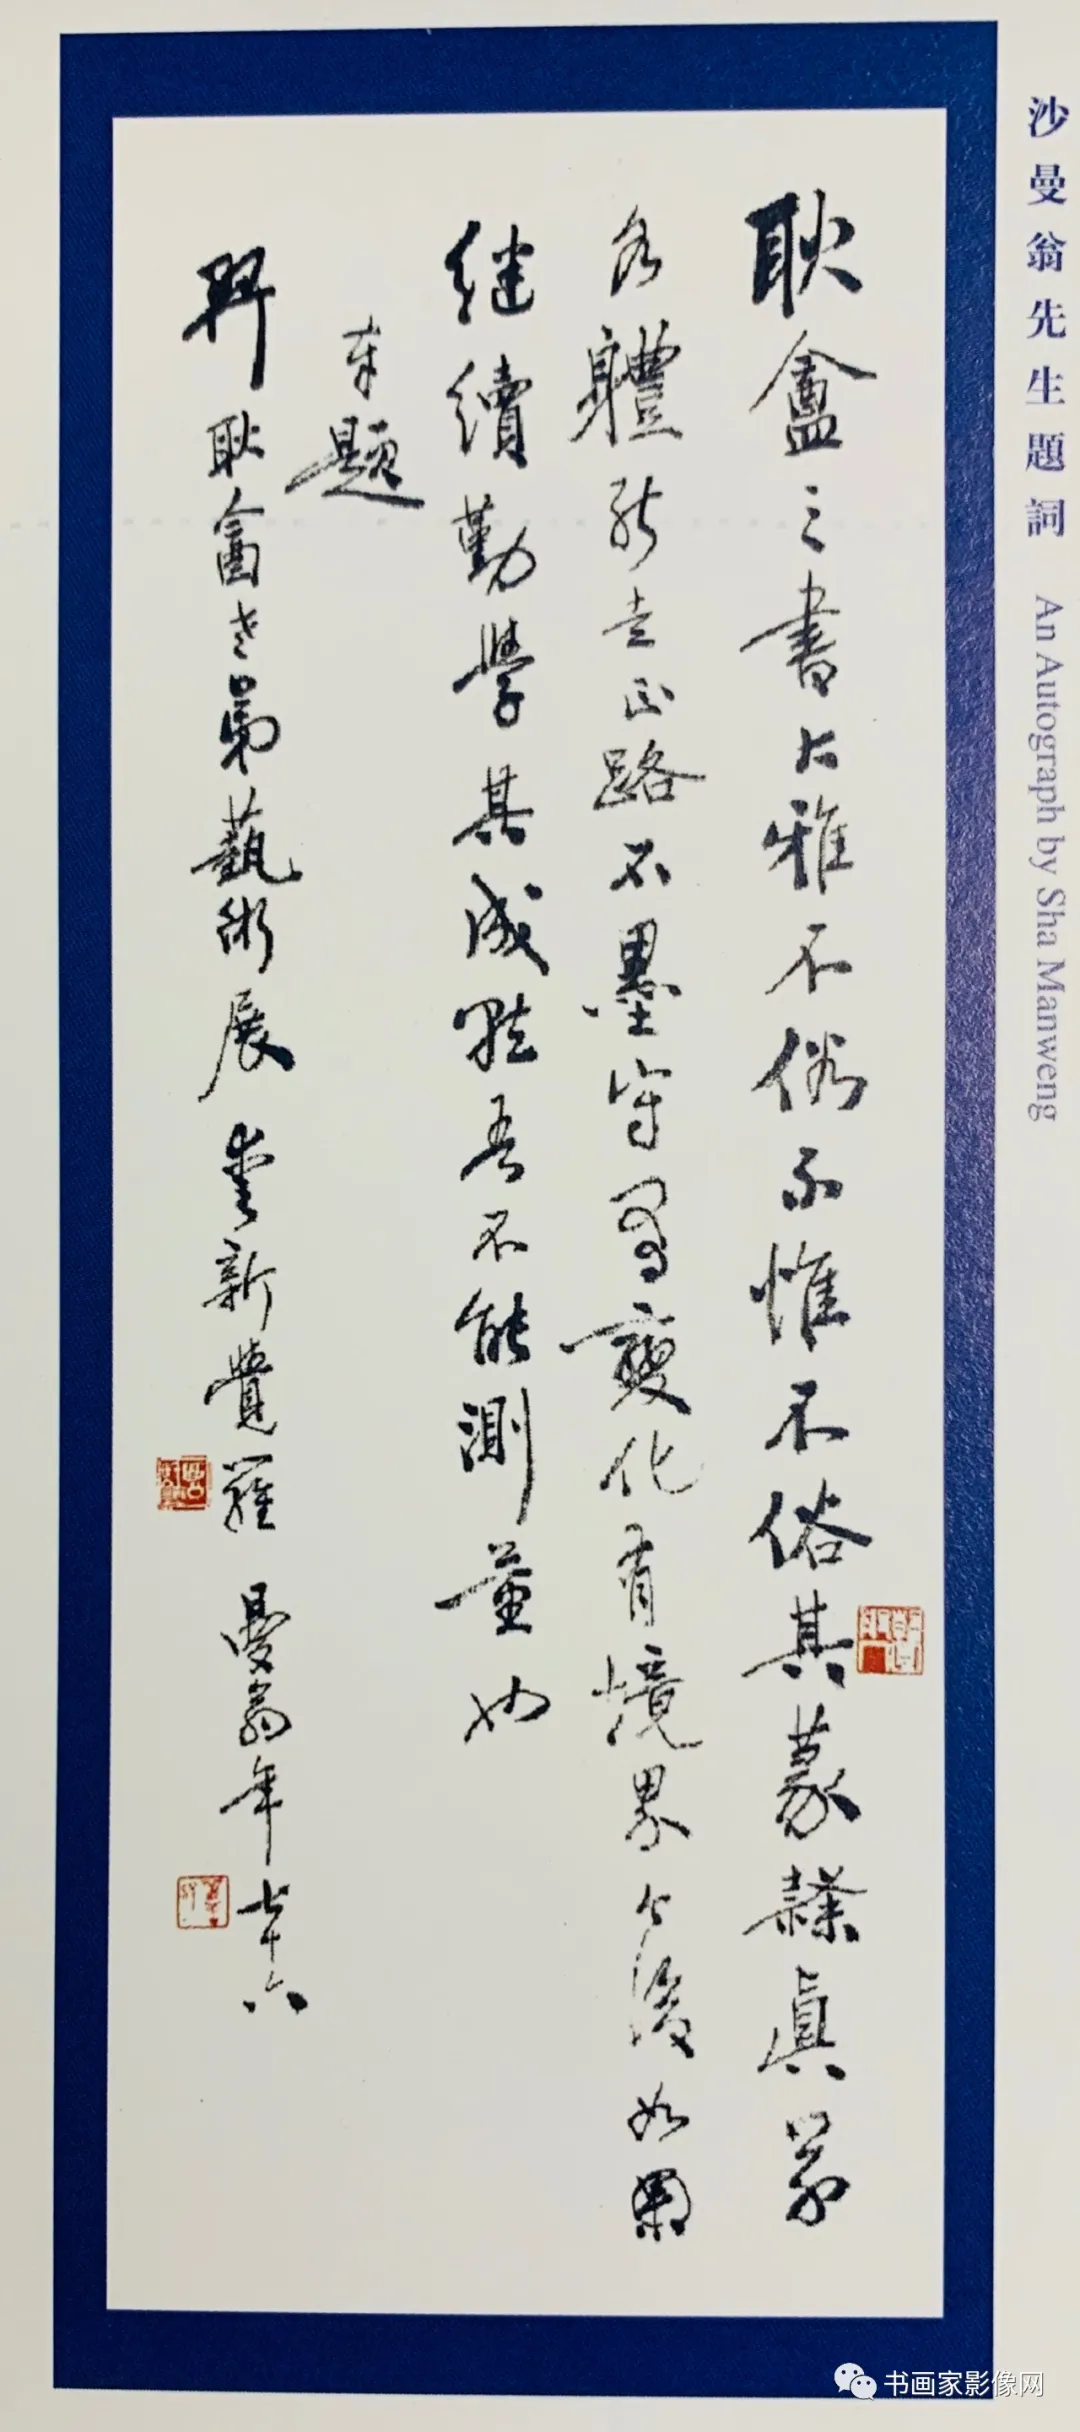 沙曼翁先生題詞 An Autograph by Sha Manweng
耿盦之書大雅不俗不惟不俗其篆隸真草
各體能走正路不墨守有變化有境界今後如果
继續勤學其成就吾不能測量也
奉題
耿盦老弟藝術展 愛新覺羅 曼翁年七十六
书画家影像网